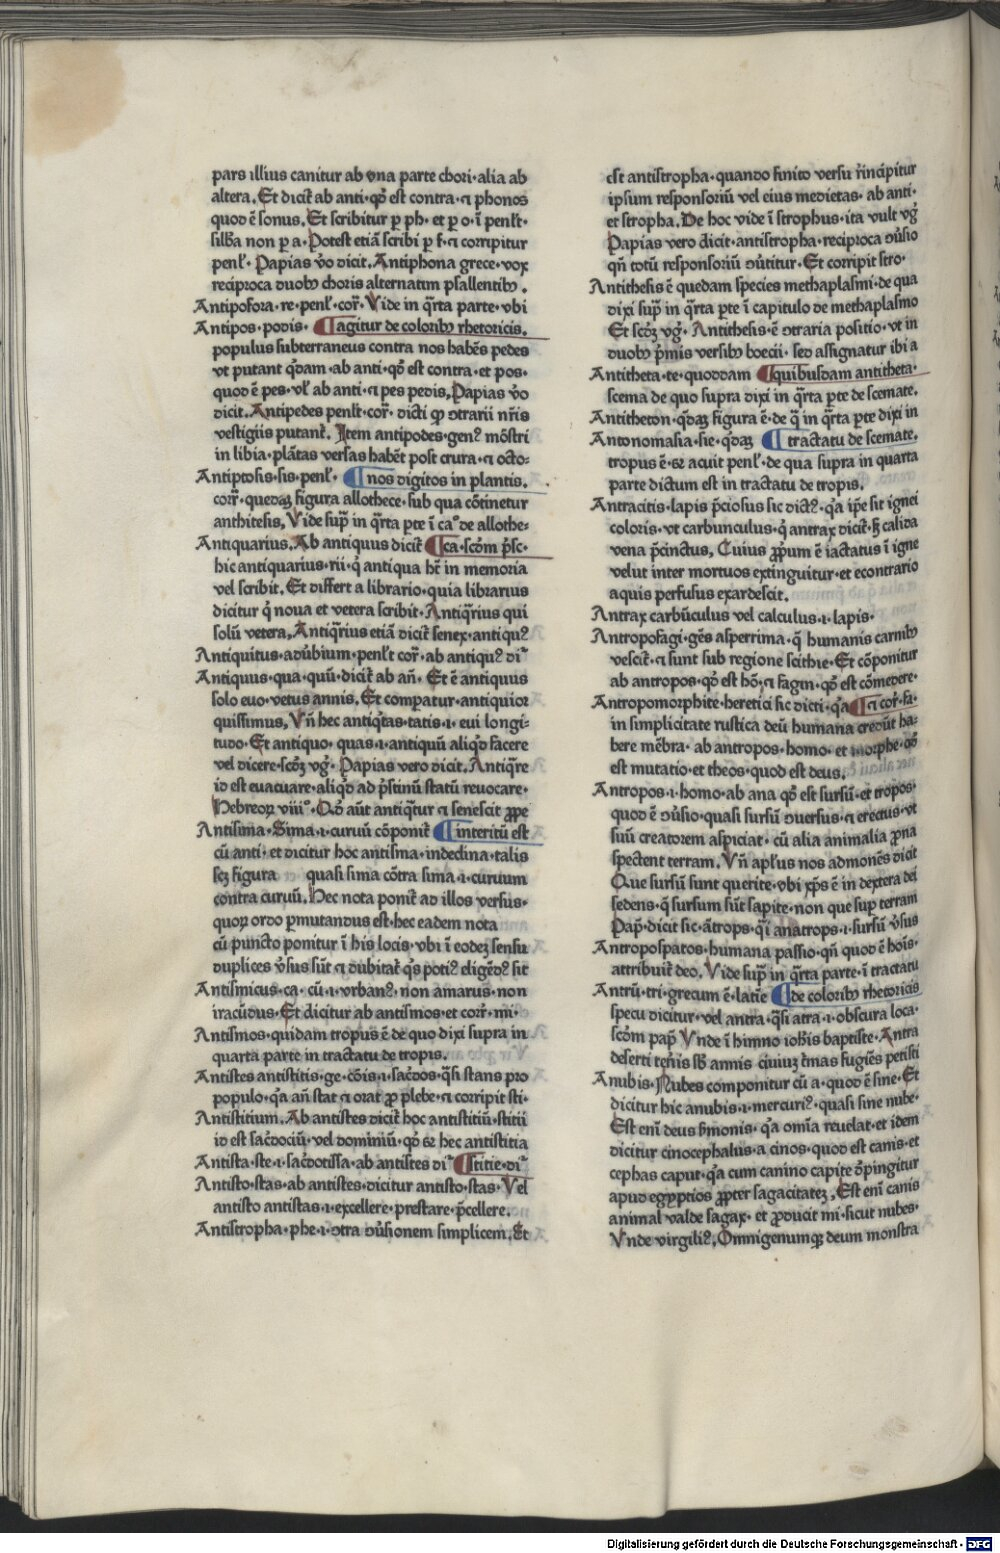 pars illius canitur ab vna parte chori·alia ab
altera. Et dicit̃ ab anti·qď est contra·⁊ phonos
quod ē sonus. Et scribitur p̲ ph·et p̲ o·ī penl̃t·
sillƀa non p̲ a·Potest etiā scribi p̲ f·⁊ corripitur
penl̃·Papias v̊o dicit. Antiphona grece·vox
reciproca duobꝫ choris alternatim psallentibꝫ.
Antipofora·re·penl̃·cor̃·Vide in q̃rta parte·vbi
Antipos·podis· ¶agitur de coloribꝫ rhetoricis.
populus subterraneus contra nos habēs pedes
vt putant q̇dam·ab anti·qď est contra·et pos·
quod ē pes·vl̃ ab anti·⁊ pes pedis. Papias v̊o
dicit. Antipedes penl̃t·cor̃·dicti ꝙ ↄtrarii nr̃is
vestigiis putant̃. Item antipodes·genꝰ mōstri
in libia·plātas versas habēt post crura·⁊ octo-
Antiptosis·sis·penl̃· ¶nos digitos in plantis.
corr̃·quedaꝫ figura allothece·sub qua cōtinetur
anthitesis, Vide sup̃ in q̃rta pte ī caº de allothe-
Antiquarius. Ab antiquus dicit̃ ¶ca·scḋm p̃sc·
hic antiquarius·rii·q̇ antiqua hꝫ in memoria
vel scribit. Et differt a librario·quia librarius
dicitur q̇ noua et vetera scribit·Antiq̃rius qui
solū vetera, Antiq̃rius etiā dicit̃ senex·antiquꝰ
Antiquitus·aduƀium·penl̃t cor̃·ab antiquꝰ di⁻
Antiquus·qua·quū·dicit̃ ab añ·Et ē antiquus
solo euo·vetus annis. Et compatur·antiquior
quissimus, Vñ hec antiq̇tas·tatis·ı·eui longi-
tudo·Et antiquo·quas·ı·antiquū aliqḋ facere
vel dicere·scḋꝫ vǧ·Papias vero dicit. Antiq̃re
id est euacuare·aliqḋ ad p̃stinū statū reuocare·
Hebreoꝝ viiiº·Qḋ aūt antiq̃tur ⁊ senescit ꝓpe
Antisima·Sima·ı·curuū cōponit̃ ¶interitū est
cū anti·et dicitur hoc antisma·indeclina·talis
scꝫ figura quasi sima cōtra sima·ı·curuum
contra curuū. Hec nota ponit̃ ad illos versus·
quoꝝ ordo p̲mutandus est·hec eadem nota
cū puncto ponitur ī his locis·vbi ī eodeꝫ sensu
duplices v̊sus sūt ⁊ dubitat̃ q̇s potiꝰ eligēdꝰ sit
Antismicus·ca·cū·ı·vrbanꝰ, non amarus·non
iracūdus. Et dicitur ab antismos·et corr̃·mi·
Antismos·quidam tropus ē de quo dixi supra in
quarta parte in tractatu de tropis.
Antistes antistitis·ge·cōis·ı·sac̃dos·q̃si stans pro
populo·q̇a añ stat ⁊ orat̃ ꝓ plebe·⁊ corripit sti·
Antistitium. Ab antistes dicit̃ hoc antistitiū·stitii
id est sac̃dociū·vel dominiū·qď ⁊ hec antistitia
Antista·ste·ı·sac̃dotissa·ab antistes di⁻ ¶stitie·di⁻
Antisto·stas·ab antistes·dicitur antisto·stas·Vel
antisto antistas·ı·excellere·prestare·p̃cellere.
Antistropha·phe·ı·ↄtra ↄu̇sionem simplicem. Et
est antistropha·quando finito versu r̃incipitur
ipsum responsoriū vel eius medietas·ab anti·
et stropha. De hoc vide ī strophus·ita vult vǧ
Papias vero dicit·antistropha·reciproca ↄu̇sio
qñ totū responsoriū ↄu̇titur·Et corripit stro·
Antithesis ē quedam species methaplasmi·de qua
dixi sup̃ in q̃rta p̲te ī capitulo de methaplasmo
Et scḋꝫ vǧ·Antithesis·ē ↄtraria positio·vt in
duobꝫ p̃mis versibꝫ boecii·sed assignatur ibi a
Antitheta·te·quoddam ¶quibusdam antitheta·
scema de quo supra dixi in q̃rta p̲te de scemate.
Antitheton·q̇daꝫ figura ē·de q̃ in q̃rta p̲te dixi in
Antonomasia·sie·q̇daꝫ ¶tractatu de scemate.
tropus ē·⁊ acuit penl̃·de qua supra in quarta
parte dictum est in tractatu de tropis.
Antracitis·lapis p̃ciosus sic dictꝰ·q̇a ip̃e sit ignei
coloris·vt carbunculus·q̇ antrax dicit̃·ꝫ calida
vena p̃cinctus, Cuius ꝓpum ē iactatus ī igne
velut inter mortuos extinguitur·et econtrario
aquis perfusus exardescit.
Antrax carbūculus vel calculus·ı·lapis·
Antropofagi·gēs asperrima·q̃ humanis carnibꝫ
vescit̃·⁊ sunt sub regione scithie·Et cōponitur
ab antropos·qď est hō·⁊ fagin·qď est cōmedere·
Antropomorphite·heretici sic dicti·q̇a ¶⁊ cor̃·fa·
in simplicitate rustica deū humana credūt ha-
bere mēbra·ab antropos·homo·et morphe·qď
est mutatio·et theos·quod est deus.
Antropos·ı·homo·ab ana qď est sursū·et tropos·
quod ē ↄu̇sio·quasi sursū ↄuersus·⁊ erectus·vt
suū creatorem aspiciat·cū alia animalia ꝓna
spectent terram. Vñ apl̃us nos admonēs dicit
Que sursū sunt querite·vbi xp̃s ē in dextera dei
sedens·q̃ sursum sūt sapite·non que sup terram
Pap̃·dicit sic·ātrops·q̃i anatrops·ı·sursū v̊sus
Antropospatos·humana passio·qñ quod ē hoīs·
attribuit̃ deo. Vide sup̃ in q̃rta parte·ī tractatu
Antrū·tri·grecum ē·latīe ¶de coloribꝫ rhetoricis
specu dicitur·vel antra·q̃si atra·ı·obscura loca·
scḋm pap̃ Vnde ī himno ioh̃is baptiste·Antra
deserti teñis sƀ annis ciuiuꝫ t̃mas fugiēs petisti
Anubis·Nubes componitur cū a·quod ē sine·Et
dicitur hic anubis·ı·mercuriꝰ·quasi sine nube·
Est enī deus ẜmonis·q̇a omīa reuelat·et idem
dicitur cinocephalus·a cinos·quod est canis·et
cephas caput·q̇a cum canino capite ↄ̄pingitur
apud egyptios ꝓpter sagacitateꝫ, Est enī canis
animal valde sagax·et ꝓducit mi·sicut nubes·
Vnde virgiliꝰ, Omnigenumqꝫ deum monstra
Digitalisierung gefördert durch die Deutsche Forschungsgemeinschaft - DFG